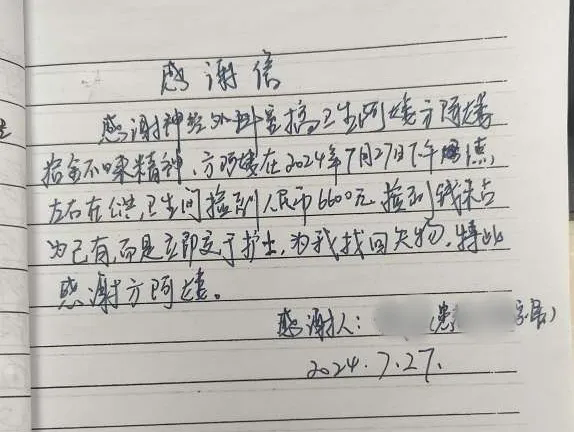 感谢信
感谢神经外科室搞卫生阿姨方阿姨
拾金不昧精神，方阿姨在2024年7月27日下午点
左右在公共卫生间捡到人民币6600元 捡到钱未占
为己有，而是立即交于护士，为我找回失物，特此
感谢方阿姨。
感谢人： （患 家属）
2024.7.27.